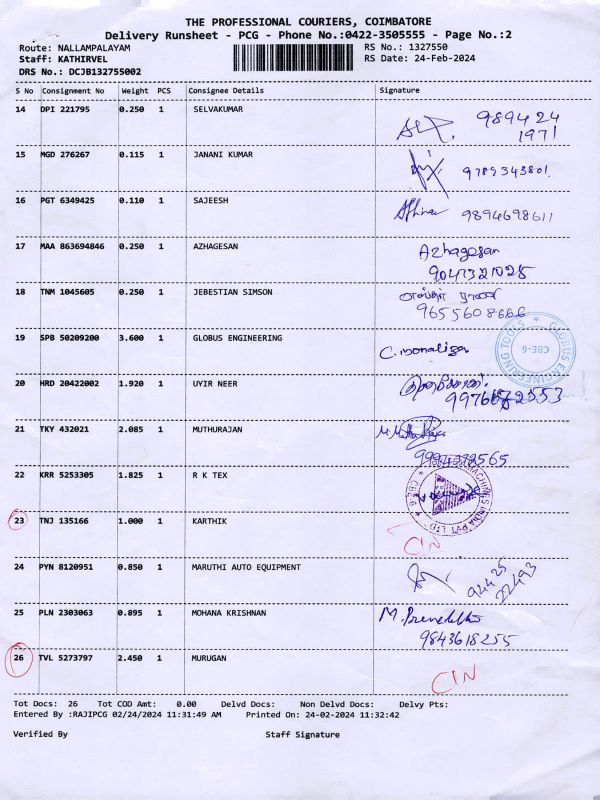 THE PROFESSIONAL COURIERS, COIMBATORE
Delivery Runsheet - PCG - Phone No.:0422-3505555 - Page No.:2
Route: NALLAMPALAYAM RS No.: 1327550
Staff: KATHIRVEL RS Date: 24-Feb-2024
DRS No.: DCJB132755002
S No Consignment No Weight PCS Consignee Details Signature
14 DPI 221795 0.250 1 SELVAKUMAR 989424
1971
15 MGD 276267 0.115 1 JANANI KUMAR 9789343801.
16 PGT 6349425 0.110 1 SAJEESH 9894698611
17 MAA 863694846 0.250 1 AZHAGESAN Azhagesan
9047321025
18 TNM 1045605 0.250 1 JEBESTIAN SIMSON
9655608666
19 SPB 50209200 3.600 1 GLOBUS ENGINEERING C. monaliza
GLOBUS ENGINEERING TOOLS * CBE-6
20 HRD 20422002 1.920 1 UYIR NEER
21 TKY 432021 2.085 1 MUTHURAJAN
22 KRR 5253305 1.825 1 R K TEX
INDIA PVT LTD * CBE-6
23 TNJ 135166 1.000 1 KARTHIK CIN
24 PYN 8120951 0.850 1 MARUTHI AUTO EQUIPMENT 94425
22493
25 PLN 2303063 0.895 1 MOHANA KRISHNAN
9843618255
26 TVL 5273797 2.450 1 MURUGAN CIN
Tot Docs: 26 Tot COD Amt: 0.00 Delvd Docs: Non Delvd Docs: Delvy Pts:
Entered By :RAJIPCG 02/24/2024 11:31:49 AM Printed On: 24-02-2024 11:32:42
Verified By Staff Signature